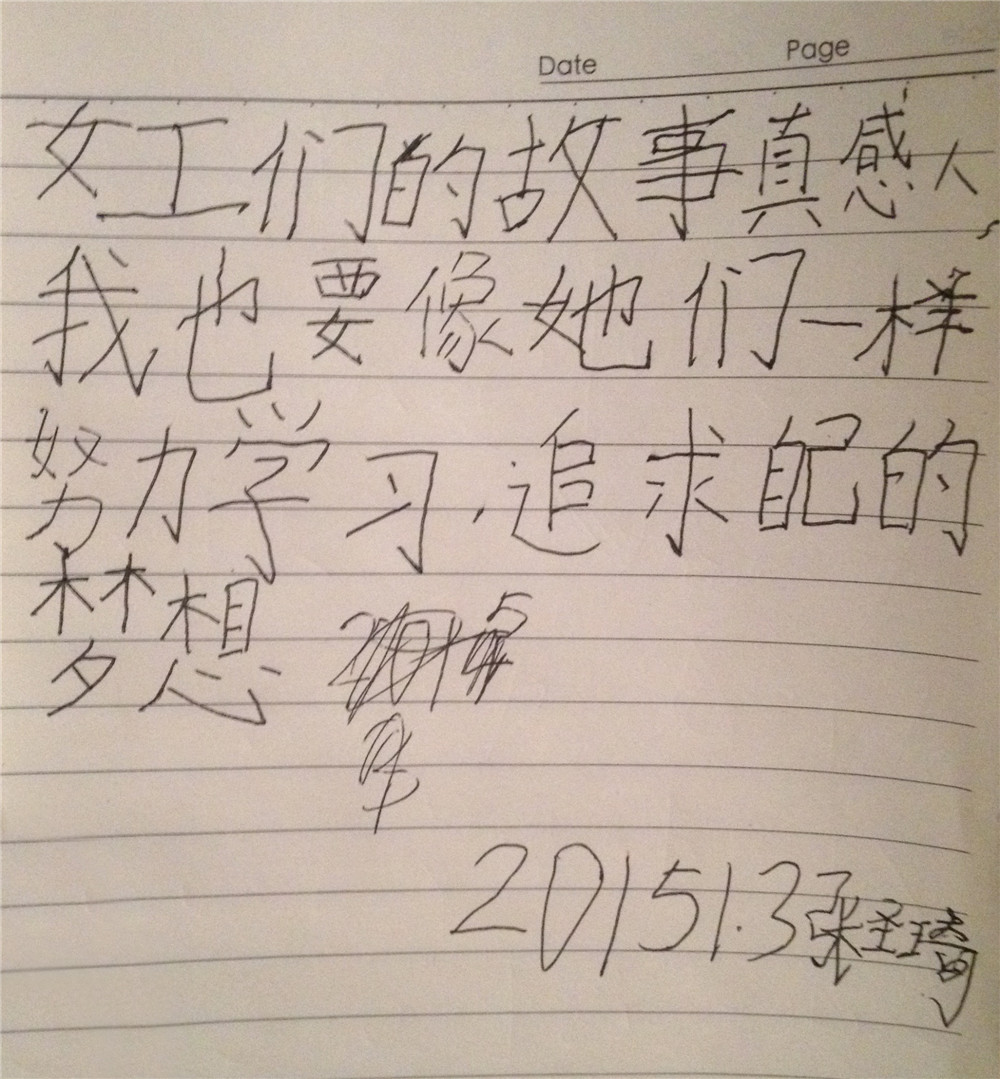 Date Page
女工们的故事真感人,
我也要像她们一样
努力学习,追求自己的
梦想
20151.3张圣琦